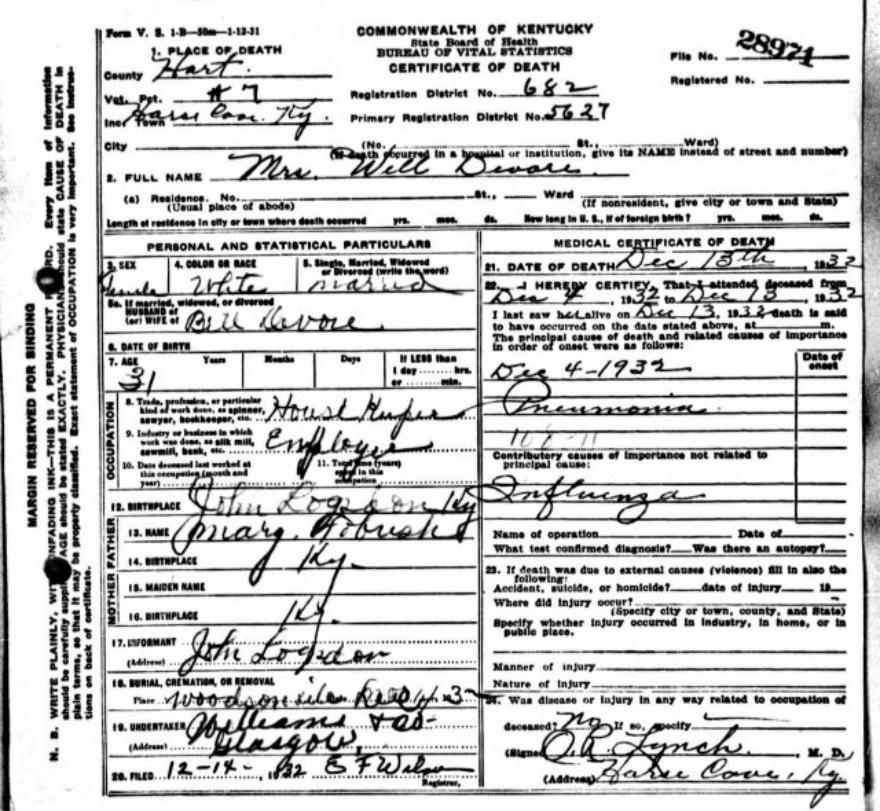 Form V. S. 1-B—50m—1-12-31
COMMONWEALTH OF KENTUCKY
State Board of Health
BUREAU OF VITAL STATISTICS
CERTIFICATE OF DEATH
File No. 28971
Registered No.
1. PLACE OF DEATH
County Hart.
Vot. Pct. #7
Inc. Town Horse Cave. Ky.
Registration District No. 682
Primary Registration District No. 5627
City (No. St., Ward)
(If death occurred in a hospital or institution, give its NAME instead of street and number)
2. FULL NAME Mrs. Will Devore.
(a) Residence. No. St., Ward
(Usual place of abode) (If nonresident, give city or town and State)
Length of residence in city or town where death occurred yrs. mos. ds. How long in U. S., if of foreign birth? yrs. mos. ds.
PERSONAL AND STATISTICAL PARTICULARS
3. SEX 4. COLOR OR RACE 5. Single, Married, Widowed
or Divorced (write the word)
Female White Married
5a. If married, widowed, or divorced
HUSBAND of
(or) WIFE of Bill Devore.
6. DATE OF BIRTH
7. AGE Years Months Days If LESS than
1 day ........ hrs.
or ........ min.
31
OCCUPATION
8. Trade, profession, or particular
kind of work done, as spinner,
sawyer, bookkeeper, etc. House Keeper
9. Industry or business in which
work was done, as silk mill,
sawmill, bank, etc. Employer
10. Date deceased last worked at
this occupation (month and
year) 11. Total time (years)
spent in this
occupation
12. BIRTHPLACE John Logsdon Ky
FATHER
13. NAME Mary
14. BIRTHPLACE Ky.
MOTHER
15. MAIDEN NAME
16. BIRTHPLACE Ky.
17. INFORMANT John Logsdon
(Address)
18. BURIAL, CREMATION, OR REMOVAL
Place Woodsonville Dec 14 32
19. UNDERTAKER Williams & Co-
(Address) Glasgow,
20. FILED 12-14-, 1932 E F Wilson
Registrar.
MEDICAL CERTIFICATE OF DEATH
21. DATE OF DEATH Dec 13th, 1932
22. I HEREBY CERTIFY, That I attended deceased from
Dec 4, 1932 to Dec 13, 1932
I last saw her alive on Dec 13, 1932 death is said
to have occurred on the date stated above, at m.
The principal cause of death and related causes of importance
in order of onset were as follows:
Date of
onset
Dec 4-1932
Pneumonia.
Contributory causes of importance not related to
principal cause:
Influenza
Name of operation Date of
What test confirmed diagnosis? Was there an autopsy?
23. If death was due to external causes (violence) fill in also the
following:
Accident, suicide, or homicide? date of injury 19
Where did injury occur?
(Specify city or town, county, and State)
Specify whether injury occurred in industry, in home, or in
public place.
Manner of injury
Nature of injury
24. Was disease or injury in any way related to occupation of
deceased? No If so, specify
(Signed O. R. Lynch. M. D.
(Address) Horse Cave, Ky.
MARGIN RESERVED FOR BINDING
N. B. WRITE PLAINLY, WITH UNFADING INK—THIS IS A PERMANENT RECORD. Every item of information
should be carefully supplied. AGE should be stated EXACTLY. PHYSICIANS should state CAUSE OF DEATH in
plain terms, so that it may be properly classified. Exact statement of OCCUPATION is very important. See instruc-
tions on back of certificate.